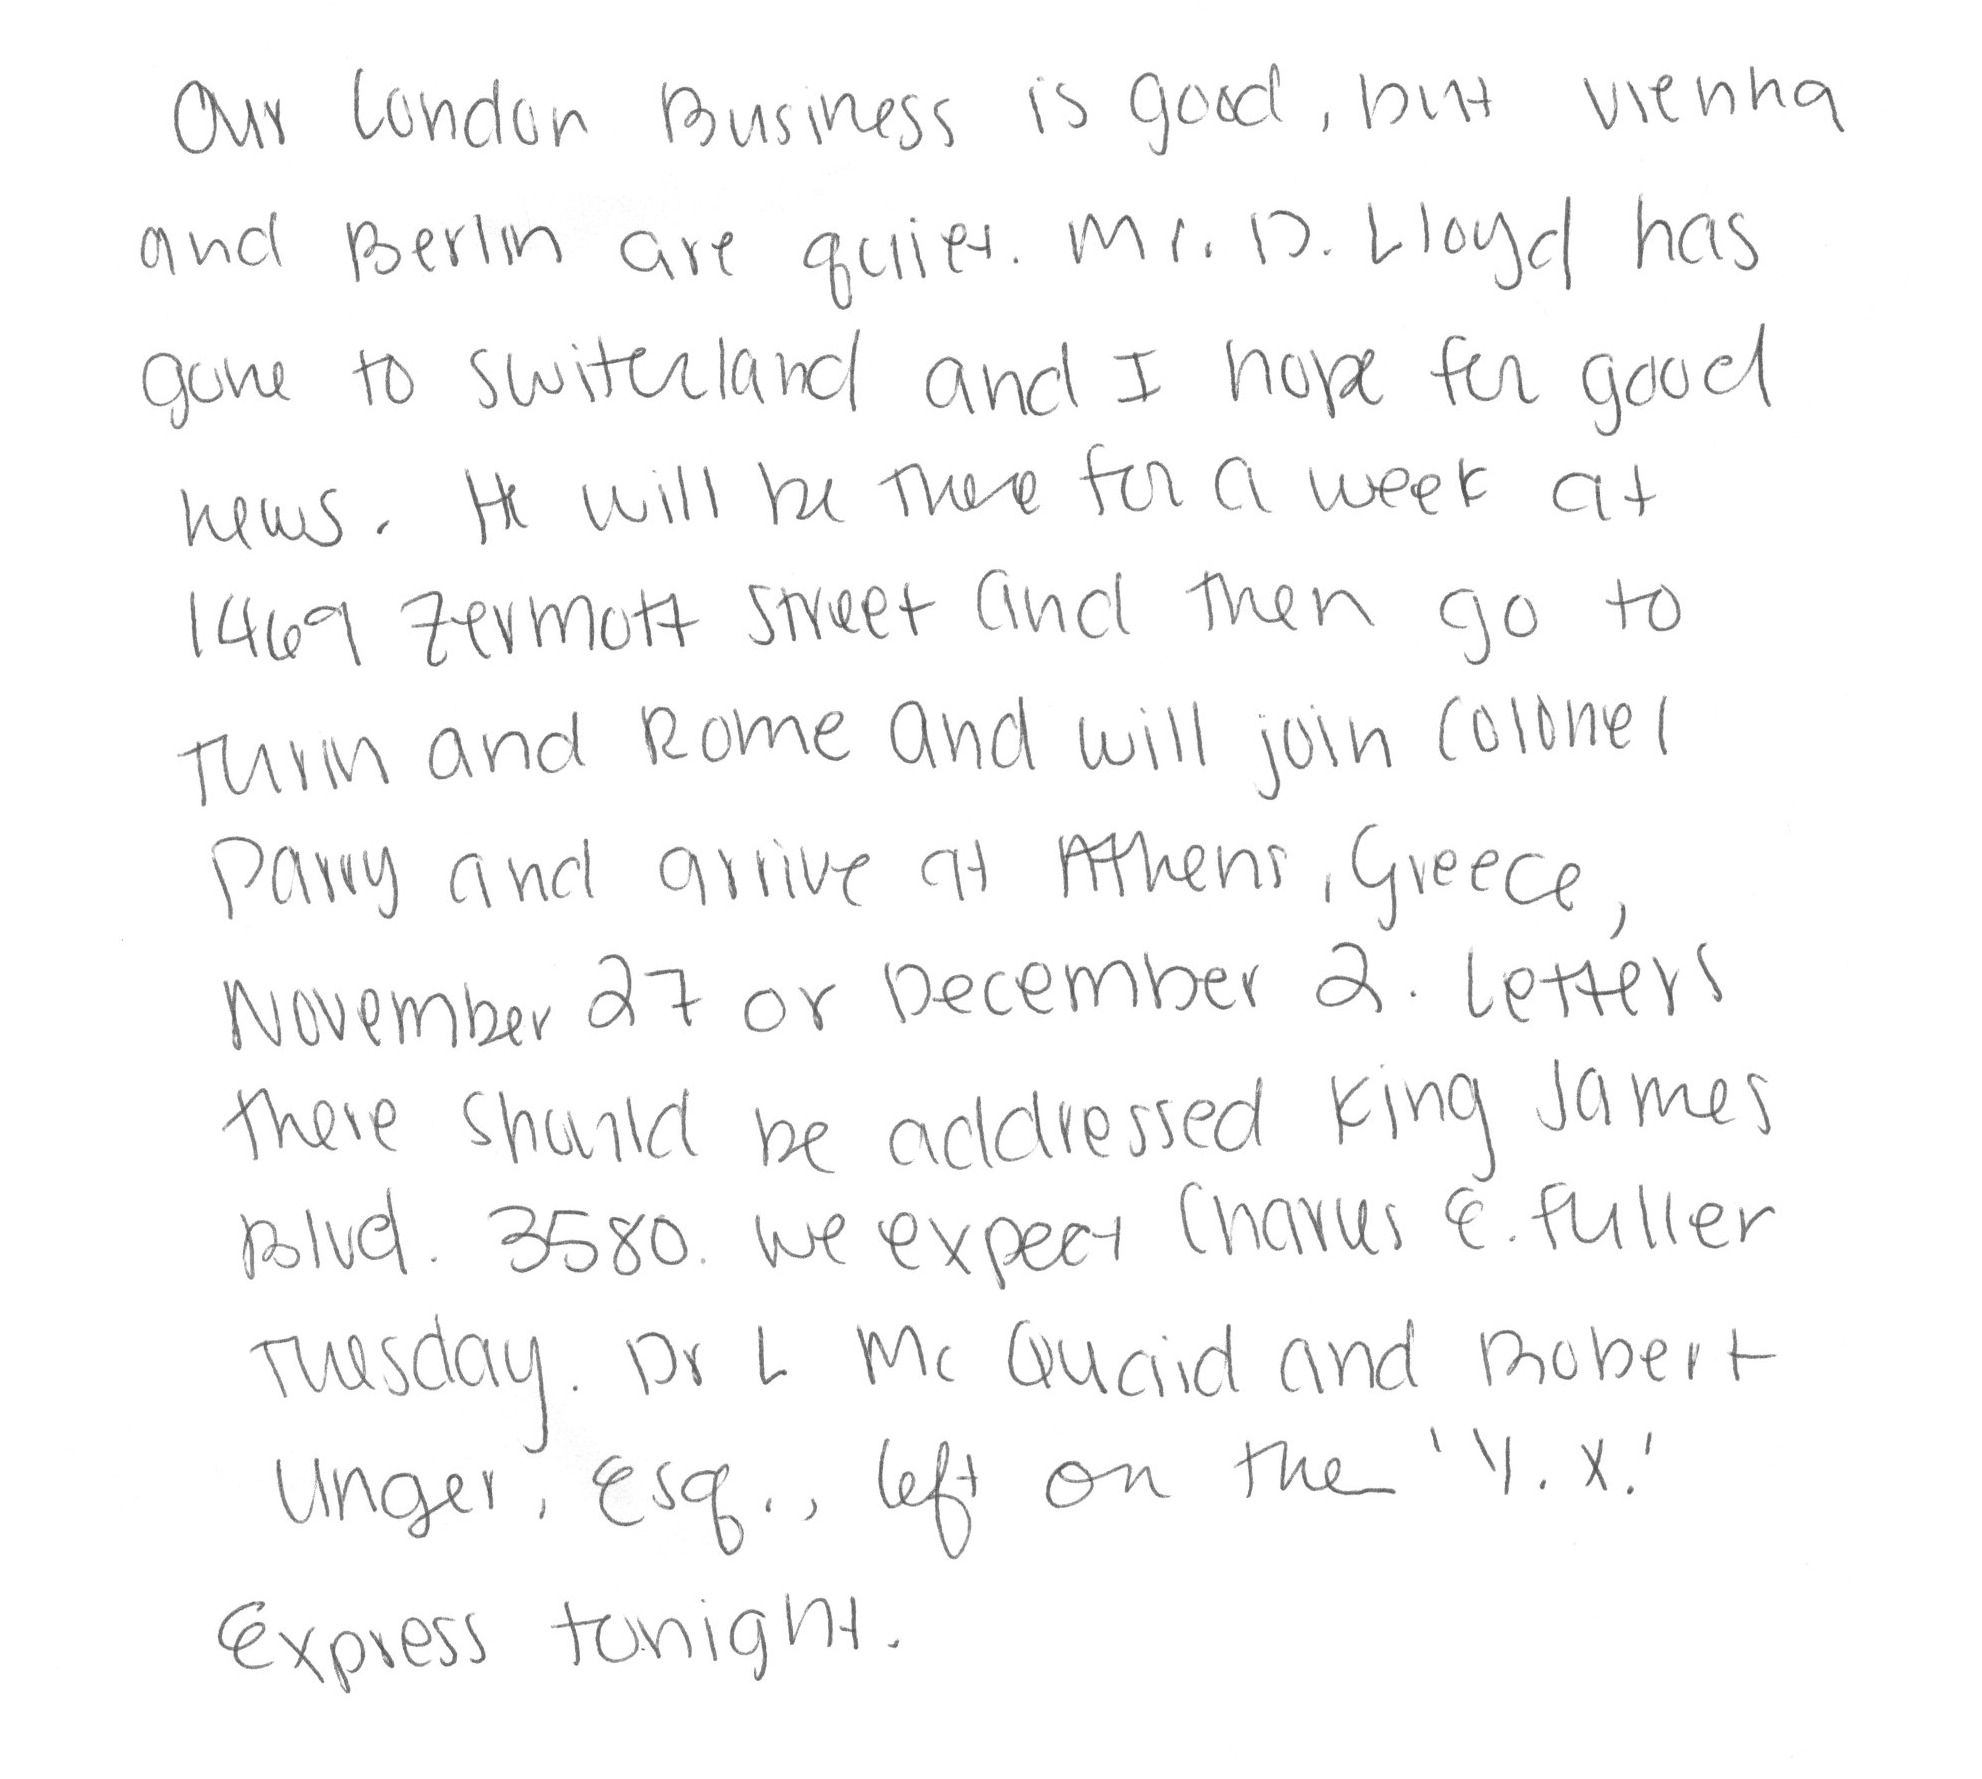 Our London Business is good, but Vienna
and Berlin are quiet. Mr. D. Lloyd has
gone to Switerzland and I hope for good
news. He will be there for a week at
1469 Zermott Street and then go to
Turin and Rome and will join Colonel
Parry and arrive at Athens, Greece,
November 27 or December 2. Letters
there should be addressed King James
Blvd. 3580. We expect Charles E. Fuller
Tuesday. Dr L Mc Quaid and Robert
Unger, Esq., left on the 'Y.X.'
Express tonight.